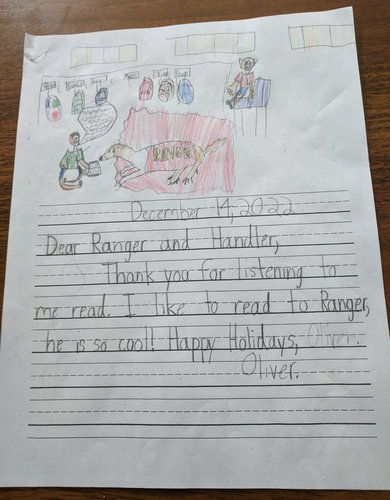 RANGER
December 14, 2022
Dear Ranger and Handler,
Thank you for listening to
me read. I like to read to Ranger,
he is so cool! Happy Holidays, Oliver.
Oliver.